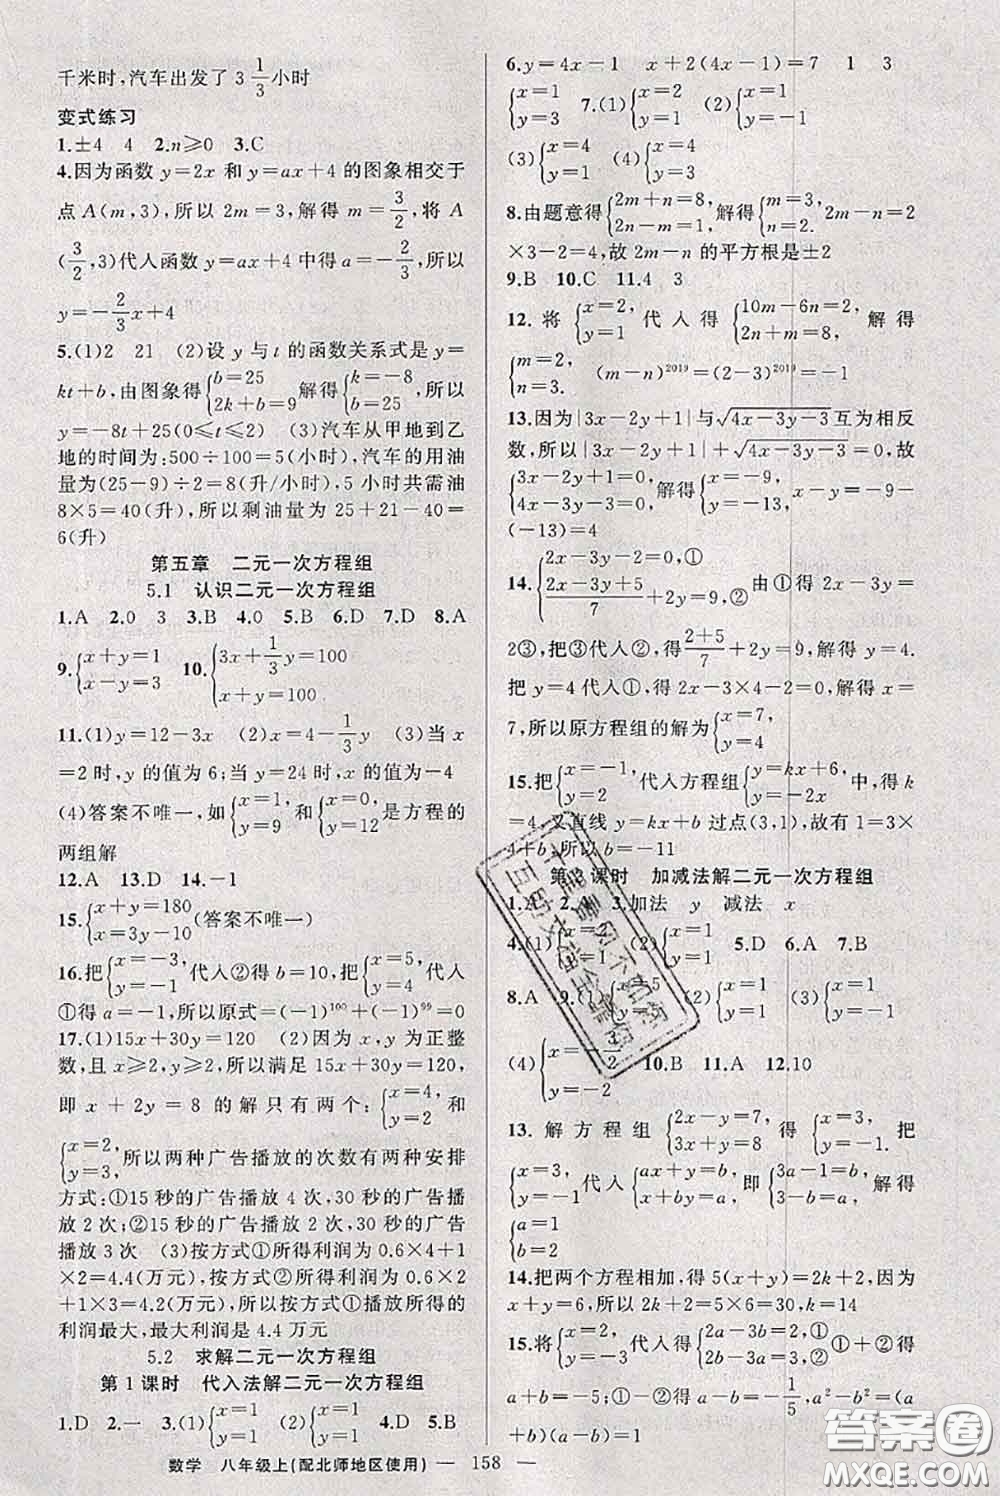 千米时,汽车出发了 3 1/3 小时
变式练习
1.±4 4 2.n≥0 3.C
4.因为函数 y=2x 和 y=ax+4 的图象相交于
点 A(m,3),所以 2m=3,解得 m=3/2,将 A
(3/2,3)代人函数 y=ax+4 中得 a=-2/3,所以
y=-2/3x+4
5.(1)2 21 (2)设 y 与 t 的函数关系式是 y=
kt+b,由图象得{b=25 2k+b=9 解得{k=-8, b=25
y=-8t+25(0≤t≤2) (3)汽车从甲地到乙
地的时间为:500÷100=5(小时),汽车的用油
量为(25-9)÷2=8(升/小时),5 小时共需油
8×5=40(升),所以剩油量为 25+21-40=
6(升)
第五章 二元一次方程组
5.1 认识二元一次方程组
1.A 2.0 3 3.B 4.0 5.B 6.D 7.D 8.A
9.{x+y=1 x-y=3 10.{3x+1/3y=100 x+y=100
11.(1)y=12-3x (2)x=4-1/3y (3)当 x
=2 时,y 的值为 6;当 y=24 时,x 的值为-4
(4)答案不唯一,如{x=1 y=9 和{x=0, y=12 是方程的
两组解
12.A 13.D 14.-1
15.{x+y=180 x=3y-10 (答案不唯一)
16.把{x=-3, y=-1 代入②得 b=10,把{x=5, y=4 代入
①得 a=-1,所以原式=(-1)¹⁰⁰+(-1)⁹⁹=0
17.(1)15x+30y=120 (2)因为 x,y 为正整
数,且 x≥2,y≥2,所以满足 15x+30y=120,
即 x+2y=8 的解只有两个:{x=4, y=2 和
{x=2, y=3, 所以两种广告播放的次数有两种安排
方式:①15 秒的广告播放 4 次,30 秒的广告播
放 2 次;②15 秒的广告播放 2 次,30 秒的广告
播放 3 次 (3)按方式①所得利润为 0.6×4+1
×2=4.4(万元),按方式②所得利润为 0.6×2
+1×3=4.2(万元),所以按方式①播放所得的
利润最大,最大利润是 4.4 万元
5.2 求解二元一次方程组
第 1 课时 代入法解二元一次方程组
1.D 2.一 3.(1){x=1 y=1 (2){x=1 y=1 4.D 5.B
6.y=4x-1 x+2(4x-1)=7 1 3
{x=1 y=3 7.(1){x=2 y=1 (2){x=1 y=1
(3){x=4 y=1 (4){x=4 y=3
8.由题意得{2m+n=8, 2n-m=1, 解得{m=3, n=2. 2m-n=2
×3-2=4,故 2m-n 的平方根是±2
9.B 10.C 11.4 3
12.将{x=2, y=1 代人得{10m-6n=2, 2n+m=8, 解得
{m=2, n=3. (m-n)²⁰¹⁹=(2-3)²⁰¹⁹=-1
13.因为|3x-2y+1|与√4x-3y-3互为相反
数,所以|3x-2y+1|+√4x-3y-3=0,故
{3x-2y+1=0 4x-3y-3=0, 解得{x=-9, y=-13, x-y=-9-
(-13)=4
14.{2x-3y-2=0,① (2x-3y+5)/7+2y=9,② 由①得 2x-3y=
2③,把③代人②,得(2+5)/7+2y=9,解得 y=4.
把 y=4 代入①,得 2x-3×4-2=0,解得 x=
7,所以原方程组的解为{x=7, y=4
15.把{x=-1, y=2 代入方程组{y=kx+6, y=-2x 中,得 k
=4,又直线 y=kx+b 过点(3,1),故有 1=3×
4+b,所以 b=-11
第2课时 加减法解二元一次方程组
1.A 3.加法 y 减法 x
4.(1) (2){x=1 y=1 5.D 6.A 7.B
8.A 9.(1) (2){x=1 y=1 (3){x=1 y=1
(4){x=-1/2 y=-2 10.B 11.A 12.10
13.解方程组{2x-y=7, 3x+y=8 得{x=3, y=-1. 把
{x=3, y=-1 代入{ 即{3a-1=b, 3-b=a, 解得
{a=1 b=2
14.把两个方程相加,得 5(x+y)=2k+2,因为
x+y=6,所以 2k+2=5×6=30,k=14
15.将{x=2, y=-3 代入得{2a-3b=2① 2b-3a=3② ①+②得
a+b=-5;①-②得 a-b=-1/5,a²-b²=(a
+b)(a-b)=1
千里春风不如你
互助文档全靠你
数学 八年级上(配北师地区使用) — 158 —
答案圈
MXQE.COM